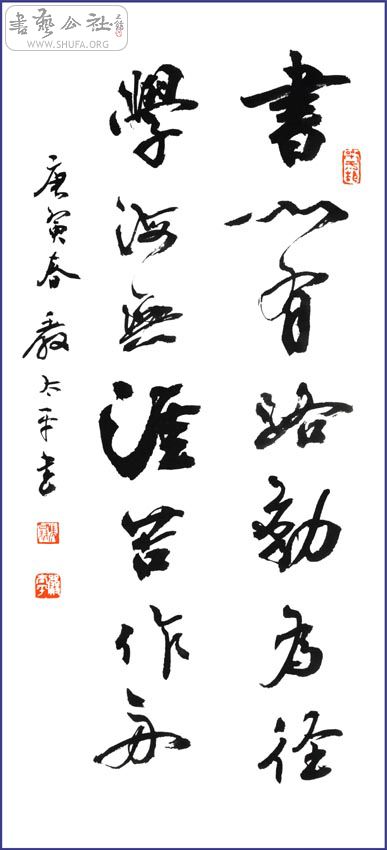 書藝公社
WWW.SHUFA.ORG
書山有路勤為径
學海無涯苦作舟
庚寅春 太平書